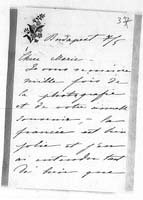 37
Budapest 4/5
Chère Marie -
Je vous remercie
mille fois de
la photografie
et de votre aimable
souvenir - la
fiancée est bien
jolie et j'en
ai entendu tant
de bien que